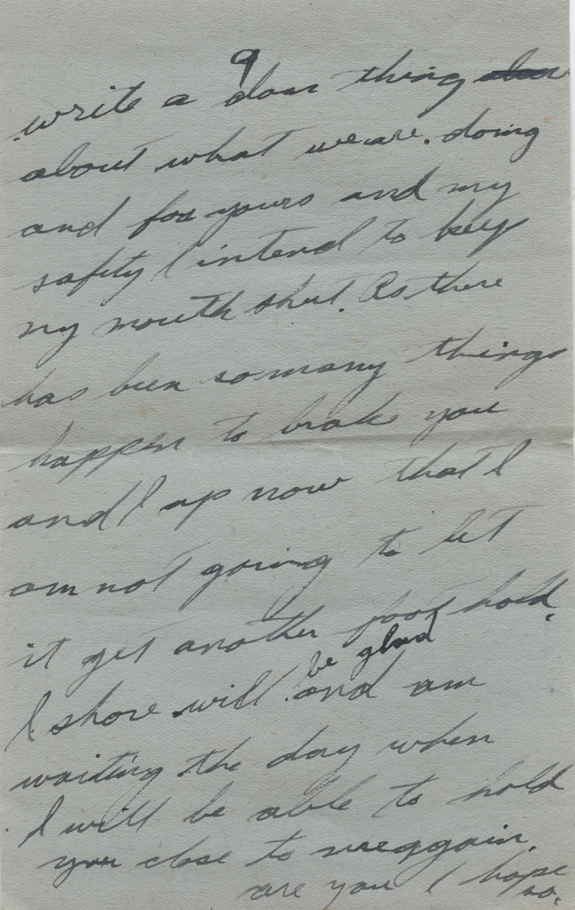 9
write a dam thing
about what weare. doing
and for yours and my
safity I intend to keep
my mouth shut. As there
has been so many things
happen to brake you
and I up now that I
am not going to let
it get another foot hold.
be glad
I shore will. and am
waiting the day when
I will be able to hold
you close to meaggain.
are you I hope
so.